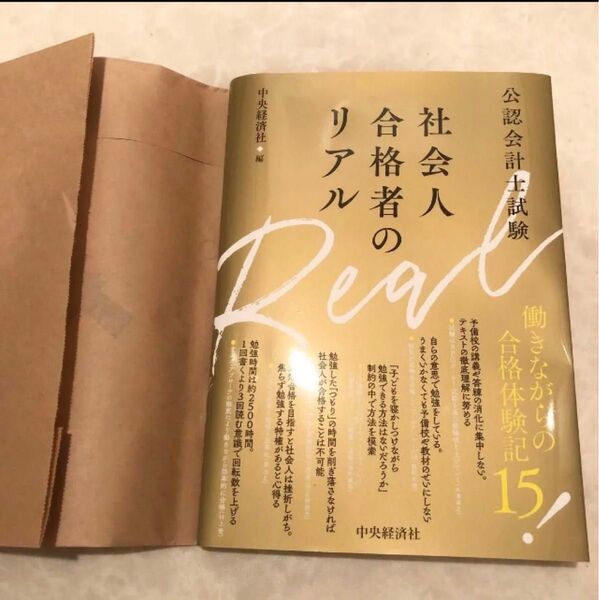 公認会計士試験
社会人
合格者の
リアル
中央経済社・編
Real
働きながらの
合格体験記
15!
予備校の講義や答練の消化に集中しない。
テキストの徹底理解に努める
自らの意思で勉強をしている。
うまくいかなくても予備校や教材のせいにしない
「子どもを寝かしつけながら
勉強できる方法はないだろうか」
制約の中で方法を模索
勉強した「つもり」の時間を削ぎ落さなければ
社会人が合格することは不可能
合格を目指すと社会人は挫折しがち。
焦らず勉強する特権があると心得る
勉強時間は約2500時間。
1回書くより3回読む意識で回転数を上げる
中央経済社